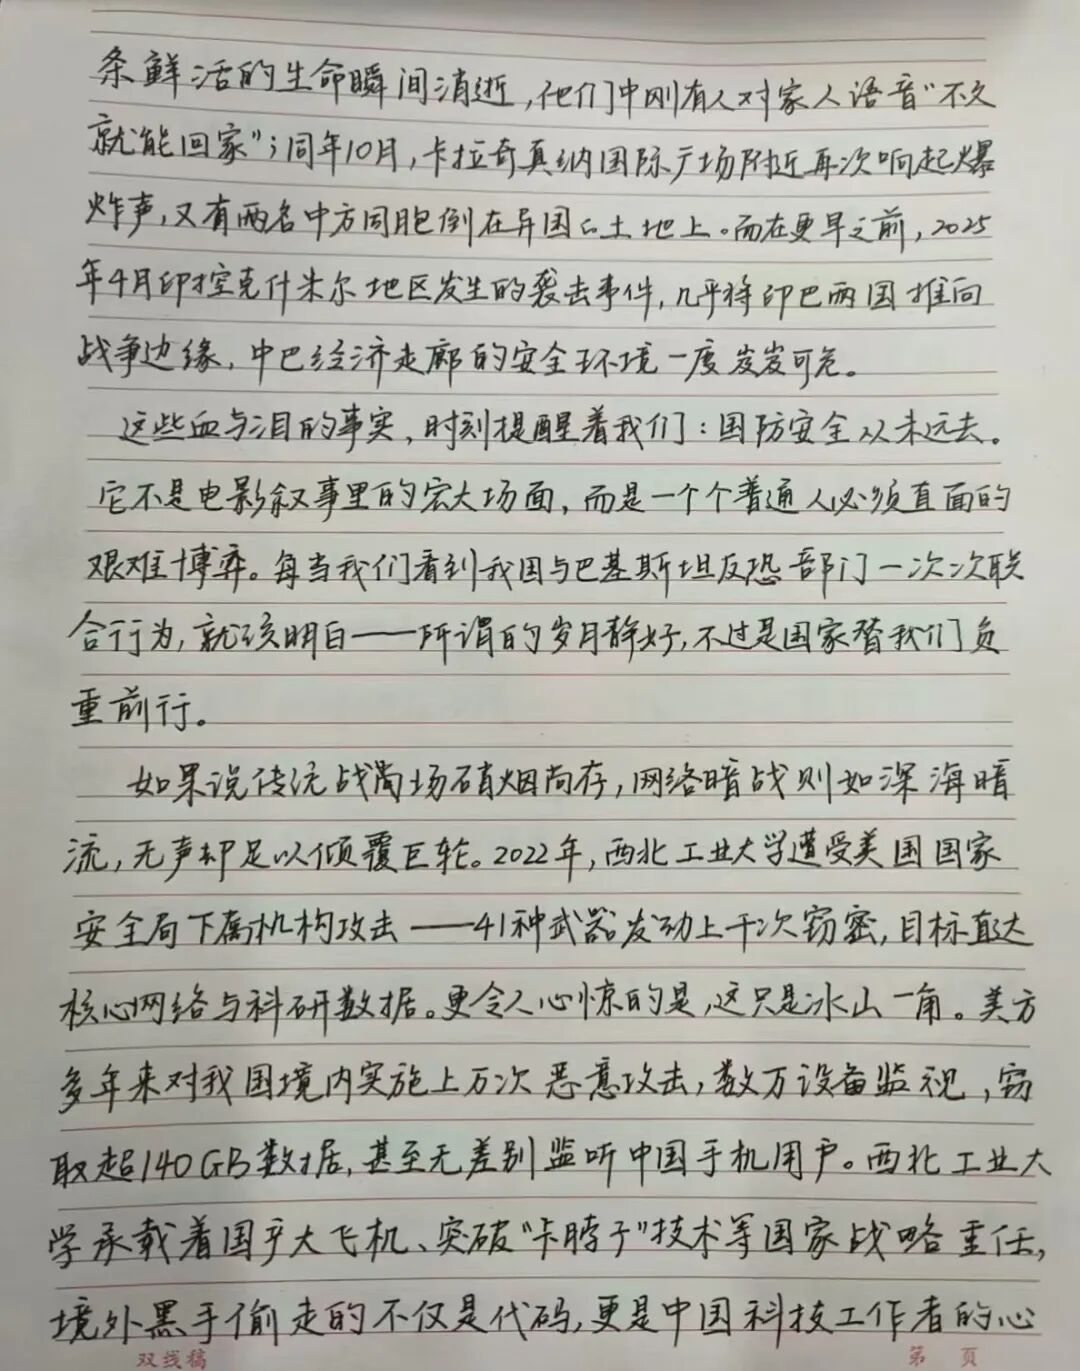 条鲜活的生命瞬间消逝，他们中刚有人对家人语音“不久
就能回家”；同年10月，卡拉奇真纳国际广场附近再次响起爆
炸声，又有两名中方同胞倒在异国的土地上。而在更早之前，2025
年4月印控克什米尔地区发生的袭击事件，几乎将印巴两国推向
战争边缘，中巴经济走廊的安全环境一度岌岌可危。
这些血与泪的事实，时刻提醒着我们：国防安全从未远去。
它不是电影叙事里的宏大场面，而是一个个普通人必须直面的
艰难博弈。每当我们看到我国与巴基斯坦反恐部门一次次联
合行为，就该明白——所谓的岁月静好，不过是国家替我们负
重前行。
如果说传统战场硝烟尚存，网络暗战则如深海暗
流，无声却足以倾覆巨轮。2022年，西北工业大学遭受美国国家
安全局下属机构攻击——41种武器发动上千次窃密，目标直达
核心网络与科研数据。更令人心惊的是，这只是冰山一角。美方
多年来对我国境内实施上万次恶意攻击，数万设备监视，窃
取超140GB数据，甚至无差别监听中国手机用户。西北工业大
学承载着国产大飞机、突破“卡脖子”技术等国家战略重任，
境外黑手偷走的不仅是代码，更是中国科技工作者的心
双线稿
第 页